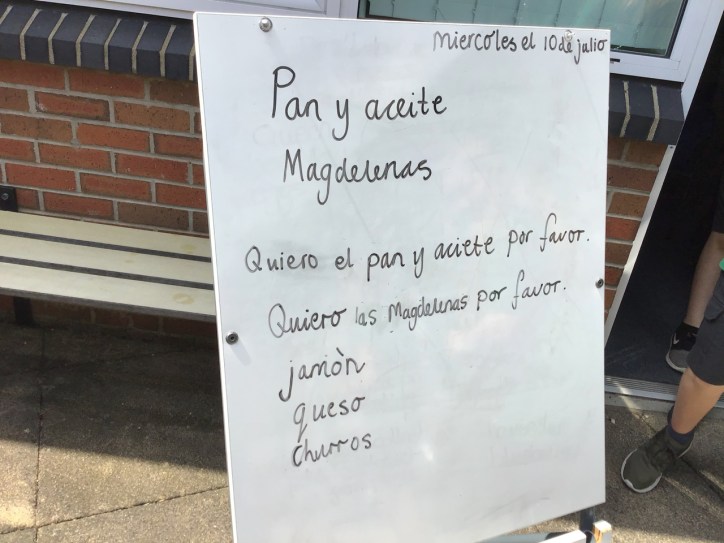 Miercoles el 10 de julio
Pan y aceite
Magdelenas
Quiero el pan y aciete por favor.
Quiero las Magdelenas por favor.
jamòn
queso
churros